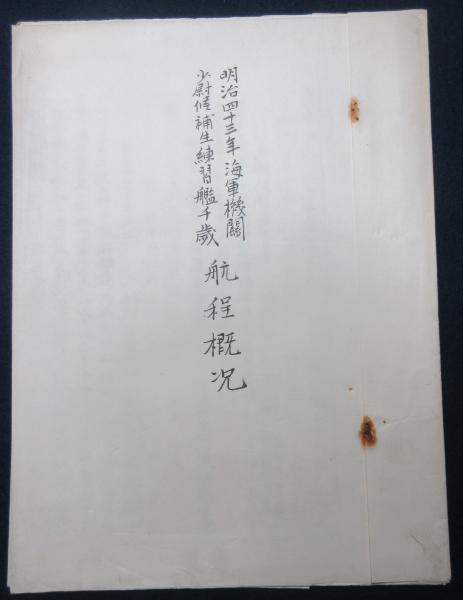 明治四十三年海軍機關
少尉候補生練習艦千歳
航程概况